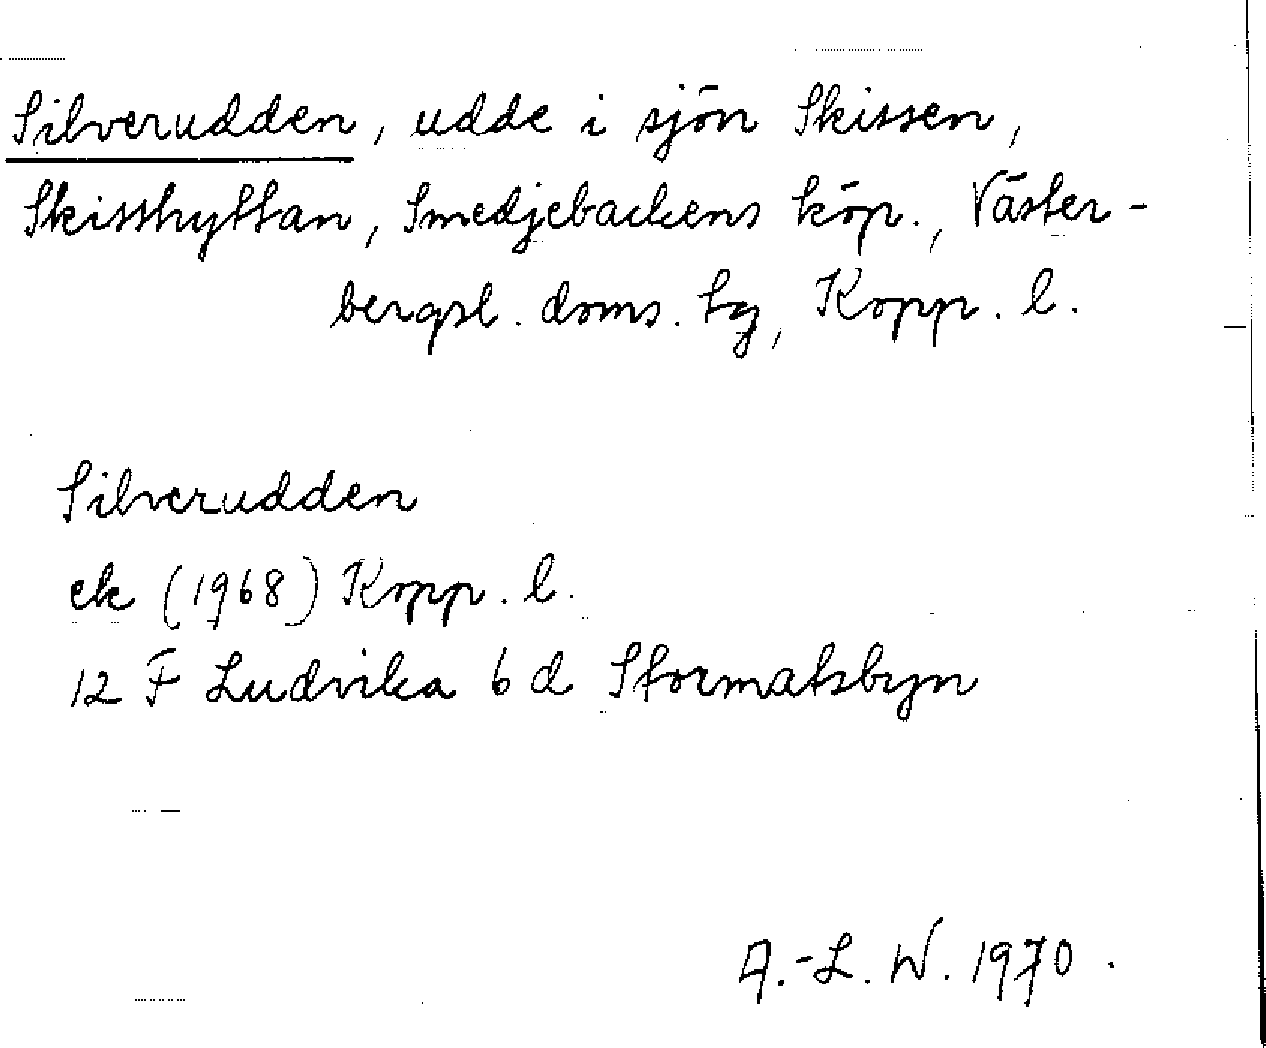 Silverudden, udde i sjön Skissen,
Skisshyttan, Smedjebackens köp., Väster-
bergsl. doms. tg, Kopp. l.
Silverudden
ek (1968) Kopp. l.
12 F Ludvika 6 d Stormatsbyn
A.-L. W. 1970.